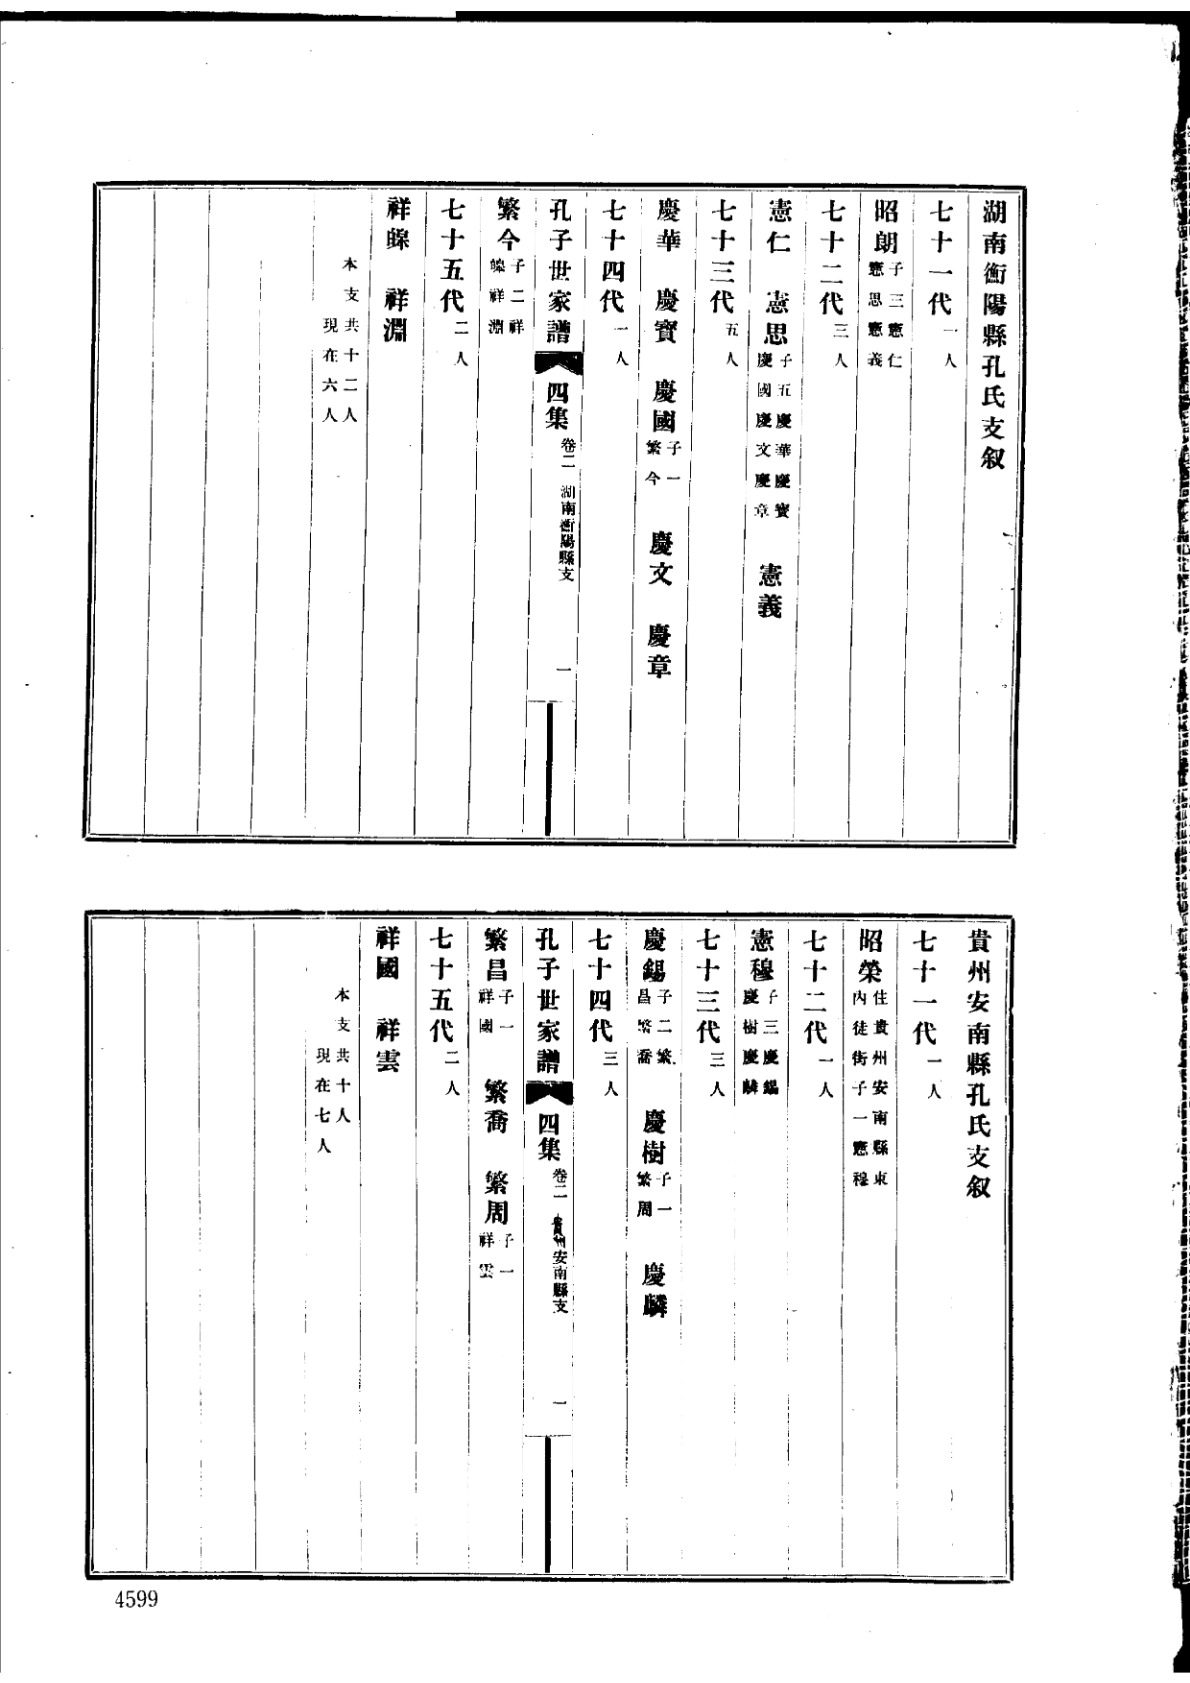 湖南衡陽縣孔氏支叙
七十一代一人
昭朗子三憲仁憲思憲義
七十二代三人
憲仁　憲思子五慶華慶寶慶國慶文慶章　憲義
七十三代五人
慶華　慶寶　慶國子一繁今　慶文　慶章
七十四代一人
孔子世家譜　四集　卷二　湖南衡陽縣支　一
繁今子二祥皞祥淵
七十五代二人
祥皞　祥淵
本支共十二人
現在六人
貴州安南縣孔氏支叙
七十一代一人
昭榮住貴州安南縣東內徒街子一憲穆
七十二代一人
憲穆子三慶錫慶樹慶麟
七十三代三人
慶錫子二繁昌繁喬　慶樹子一繁周　慶麟
七十四代三人
孔子世家譜　四集　卷二　貴州安南縣支　一
繁昌子一祥國　繁喬　繁周子一祥雲
七十五代二人
祥國　祥雲
本支共十人
現在七人
4599